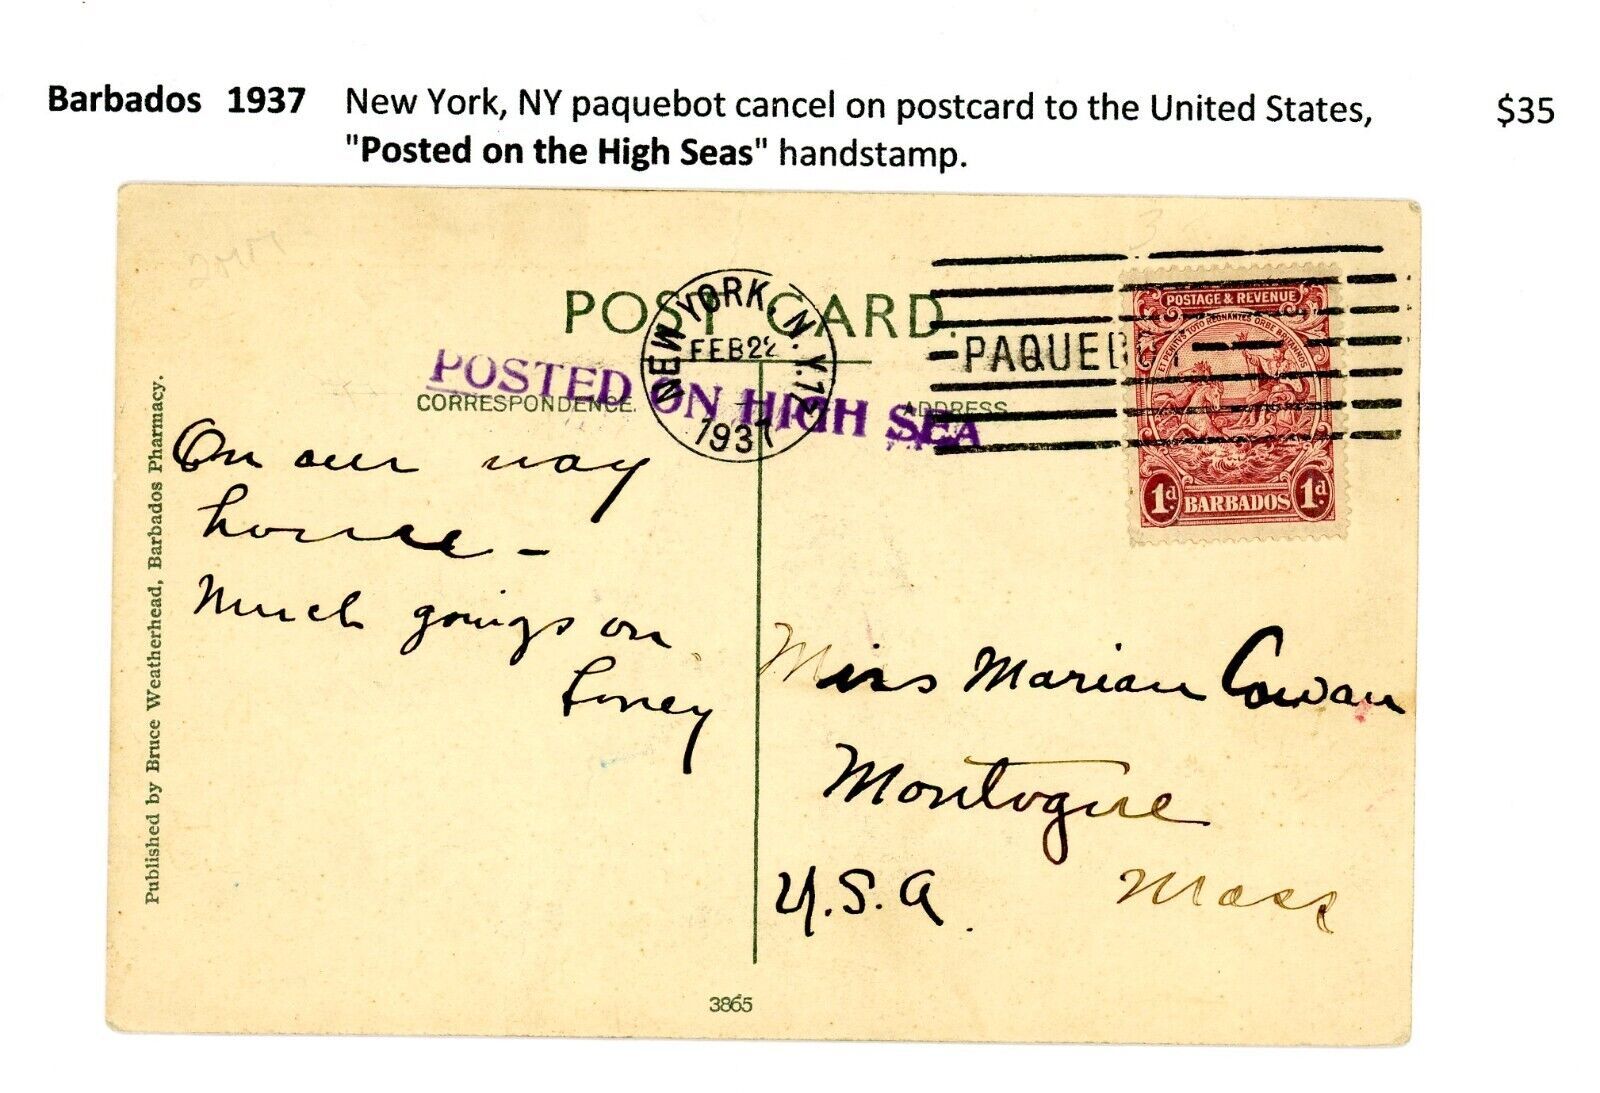 Barbados 1937 New York, NY paquebot cancel on postcard to the United States, $35
"Posted on the High Seas" handstamp.
POST CARD.
NEW YORK, N.Y. 12
FEB 22
1937
PAQUEBOT
POSTED ON HIGH SEA
CORRESPONDENCE.
ADDRESS
POSTAGE & REVENUE
ET PENITUS TOTO REGNANTES ORBE BRITANNOS
1d BARBADOS 1d
On our way
home -
Much goings on
Miss Marian Cowan
Montague
Mass
U.S.A.
Published by Bruce Weatherhead, Barbados Pharmacy.
3865